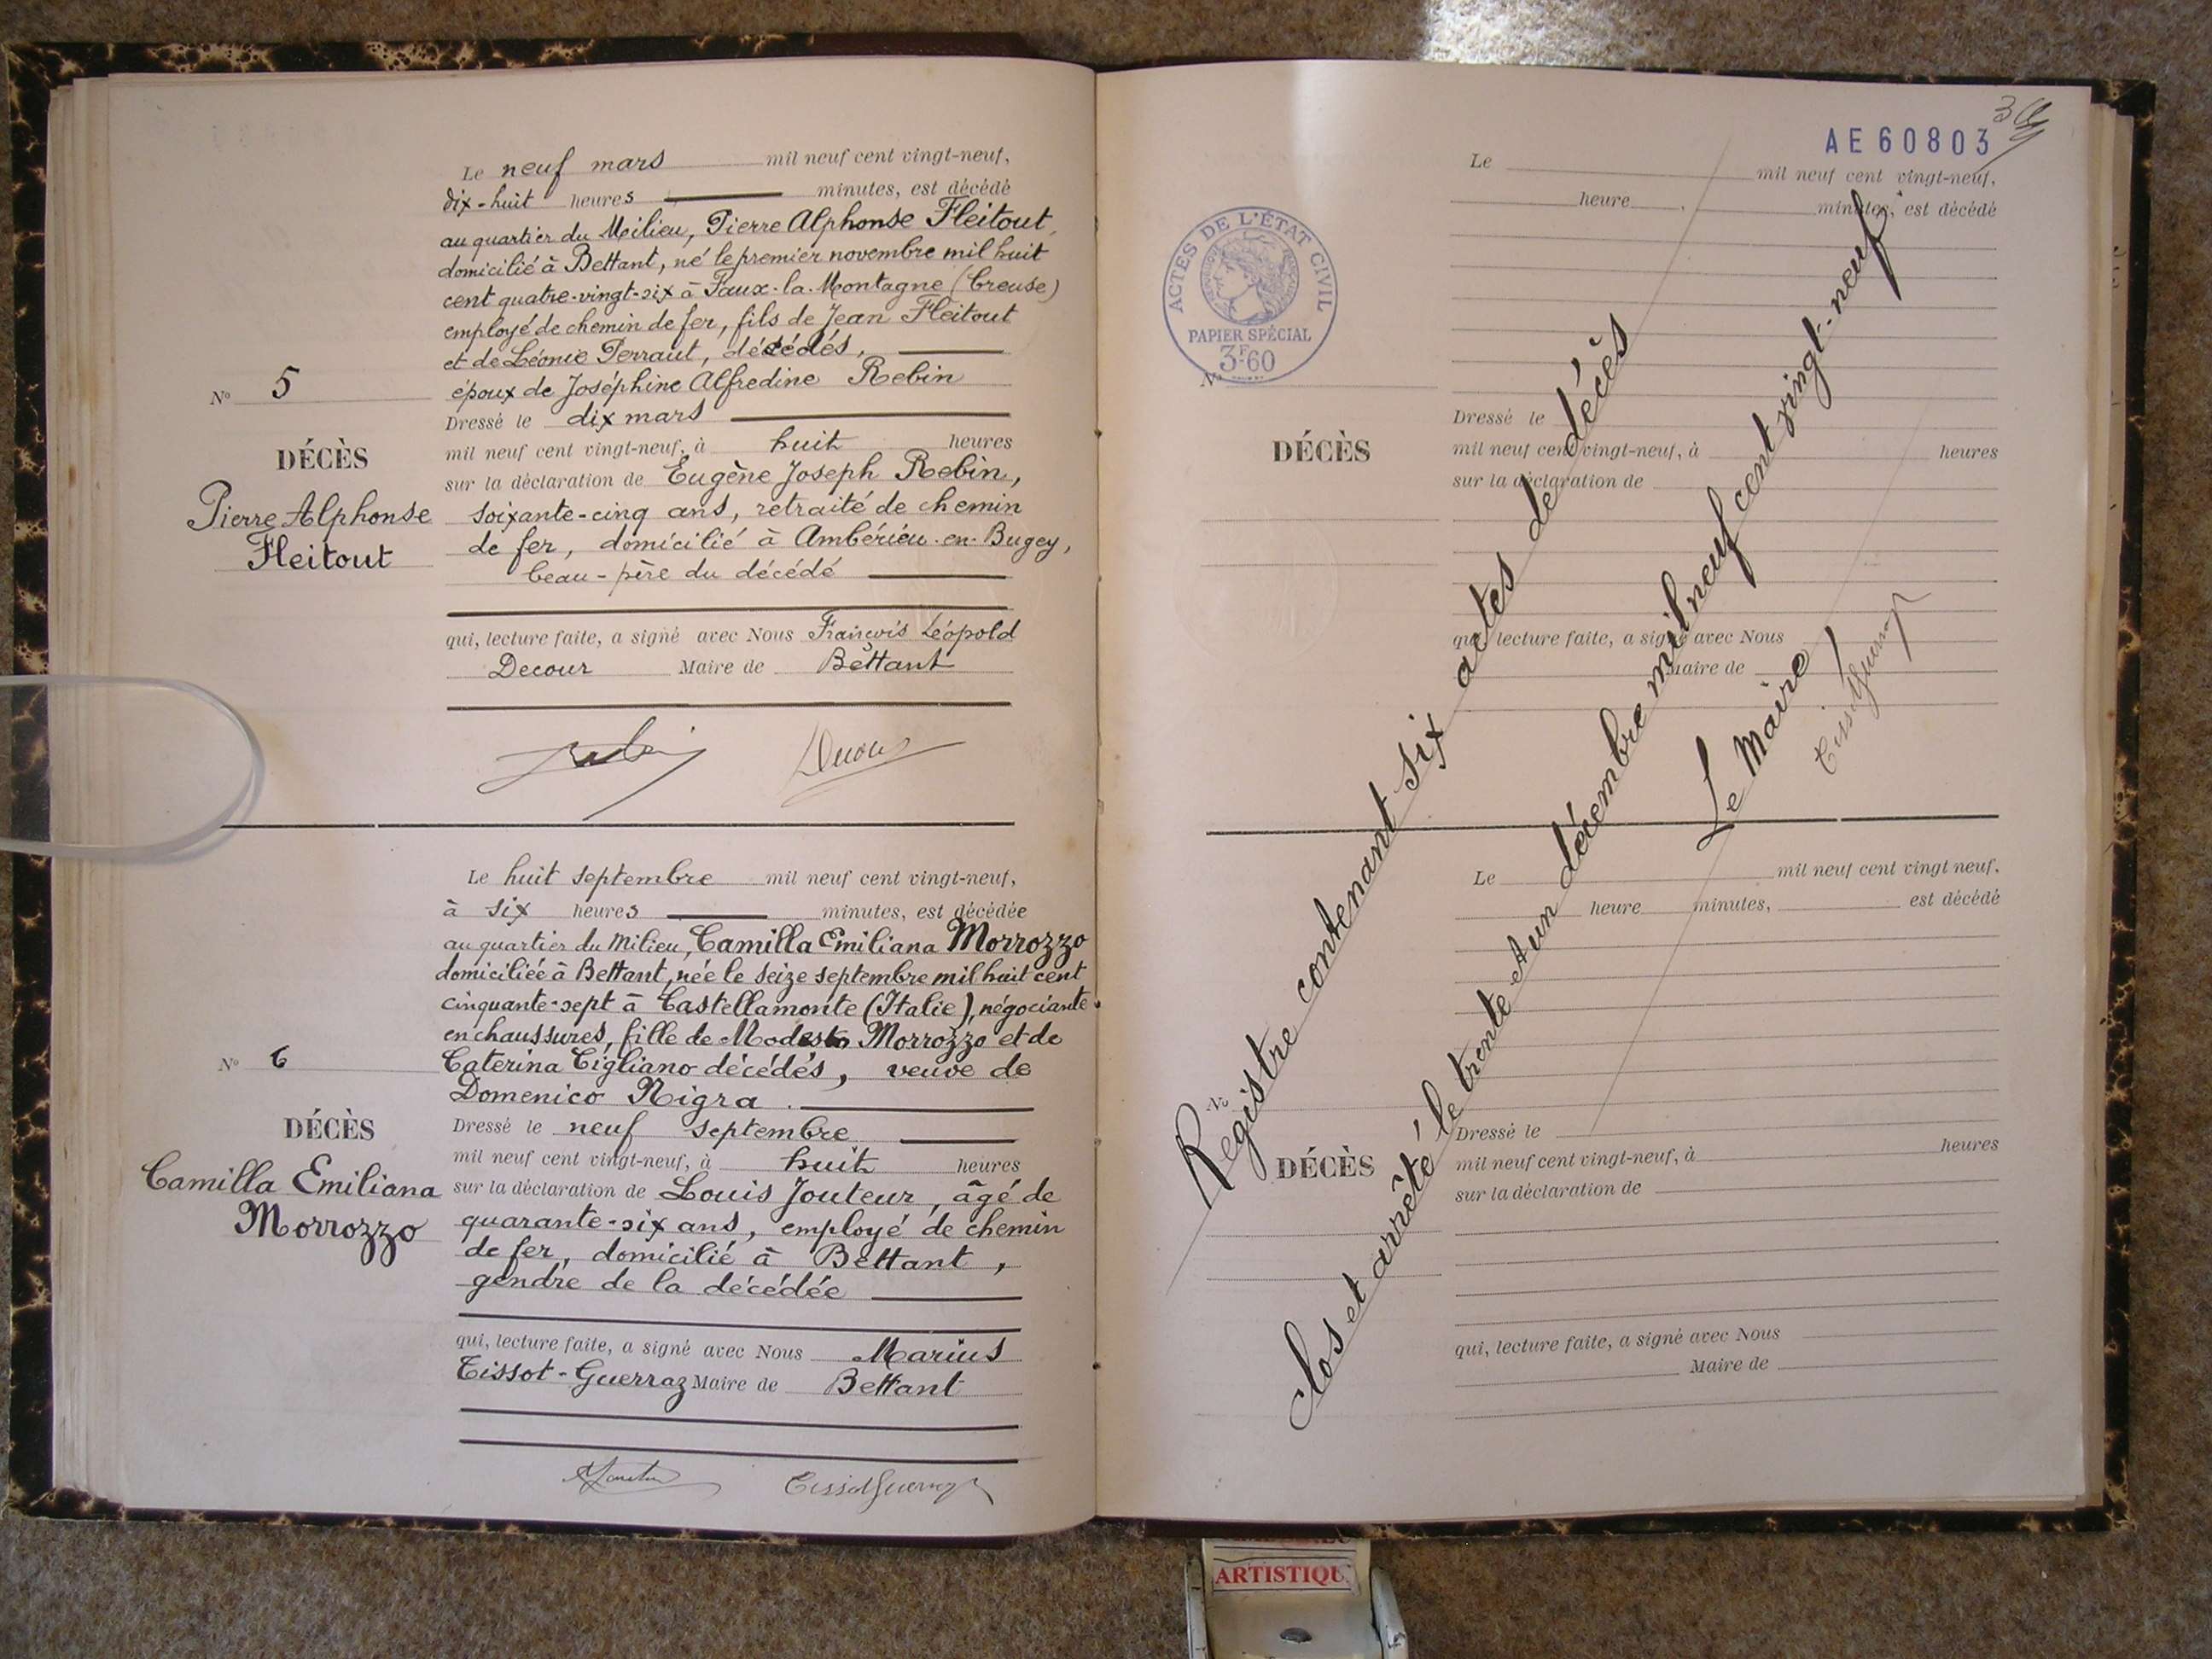 Le neuf mars mil neuf cent vingt-neuf,
dix-huit heures minutes, est décédé
au quartier du Milieu, Pierre Alphonse Fleitout,
domicilié à Bettant, né le premier novembre mil huit
cent quatre-vingt-six à Faux-la-Montagne (Creuse)
employé de chemin de fer, fils de Jean Fleitout
et de Léonie Perraut, décédés,
époux de Joséphine Alfredine Rebin
Dressé le dix mars
mil neuf cent vingt-neuf, à huit heures
sur la déclaration de Eugène Joseph Rebin,
soixante-cinq ans, retraité de chemin
de fer, domicilié à Ambérieu-en-Bugey,
beau-père du décédé
qui, lecture faite, a signé avec Nous François Léopold
Decour Maire de Bettant
Decour
No 5
DÉCÈS
Pierre Alphonse
Fleitout
Le huit septembre mil neuf cent vingt-neuf,
à six heures minutes, est décédée
au quartier du Milieu, Camilla Emiliana Morrozzo
domiciliée à Bettant, née le seize septembre mil huit cent
cinquante-sept à Castellamonte (Italie), négociante
en chaussures, fille de Modesto Morrozzo et de
Caterina Cigliano décédés, veuve de
Domenico Nigra.
Dressé le neuf septembre
mil neuf cent vingt-neuf, à huit heures
sur la déclaration de Louis Jouteur, âgé de
quarante-six ans, employé de chemin
de fer, domicilié à Bettant,
gendre de la décédée
qui, lecture faite, a signé avec Nous Marius
Tissot-Guerraz Maire de Bettant
TissotGuerraz
No 6
DÉCÈS
Camilla Emiliana
Morrozzo
AE60803
Le mil neuf cent vingt-neuf,
heure minutes, est décédé
ACTES DE L'ÉTAT CIVIL
RÉPUBLIQUE FRANÇAISE
PAPIER SPÉCIAL
3F60
No
DÉCÈS
Dressé le
mil neuf cent vingt-neuf, à heures
sur la déclaration de
qui, lecture faite, a signé avec Nous
Maire de
Registre contenant six actes de décès
Clos et arrêté le trente & un décembre mil neuf cent vingt-neuf
Le Maire
TissotGuerraz
Le mil neuf cent vingt neuf,
heure minutes, est décédé
No
DÉCÈS
Dressé le
mil neuf cent vingt-neuf, à heures
sur la déclaration de
qui, lecture faite, a signé avec Nous
Maire de
ARTISTIQU